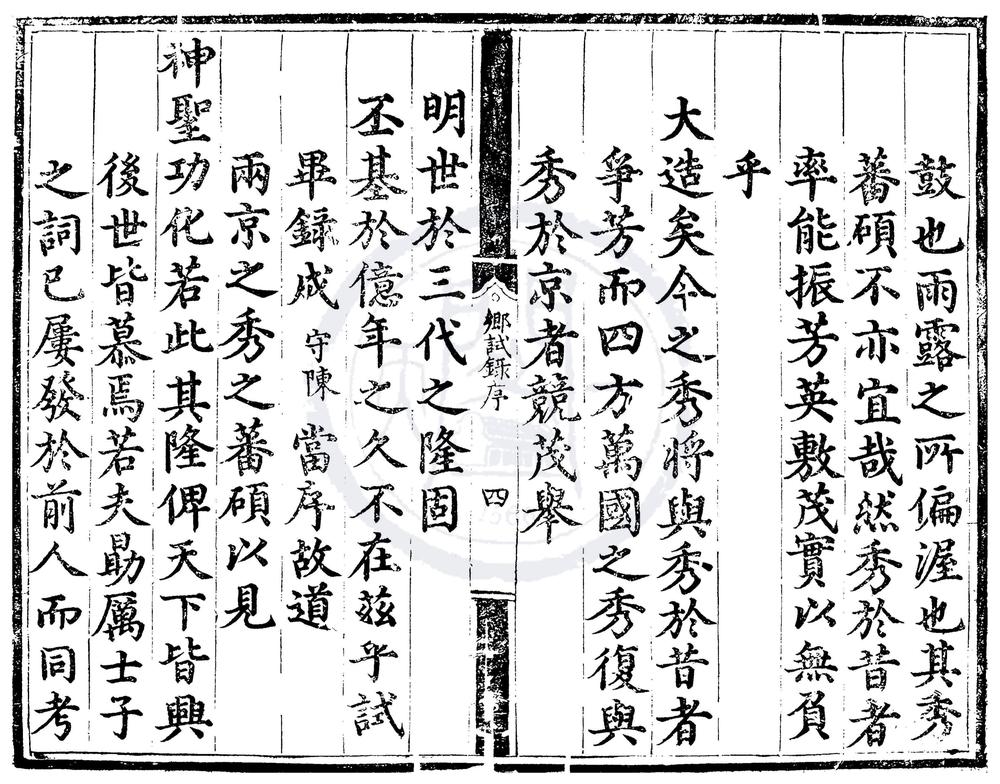 鼓也雨露之所偏渥也其秀
蕃碩不亦宜哉然秀於昔者
率能振芳英敷茂實以無負
乎
大造矣今之秀將與秀於昔者
爭芳而四方萬國之秀復與
秀於京者競茂舉
鄉試錄序 四
明世於三代之隆固
丕基於億年之久不在茲乎試
畢錄成守陳當序故道
兩京之秀之蕃碩以見
神聖功化若此其隆俾天下皆興
後世皆慕焉若夫勗厲士子
之詞已屢發於前人而同考